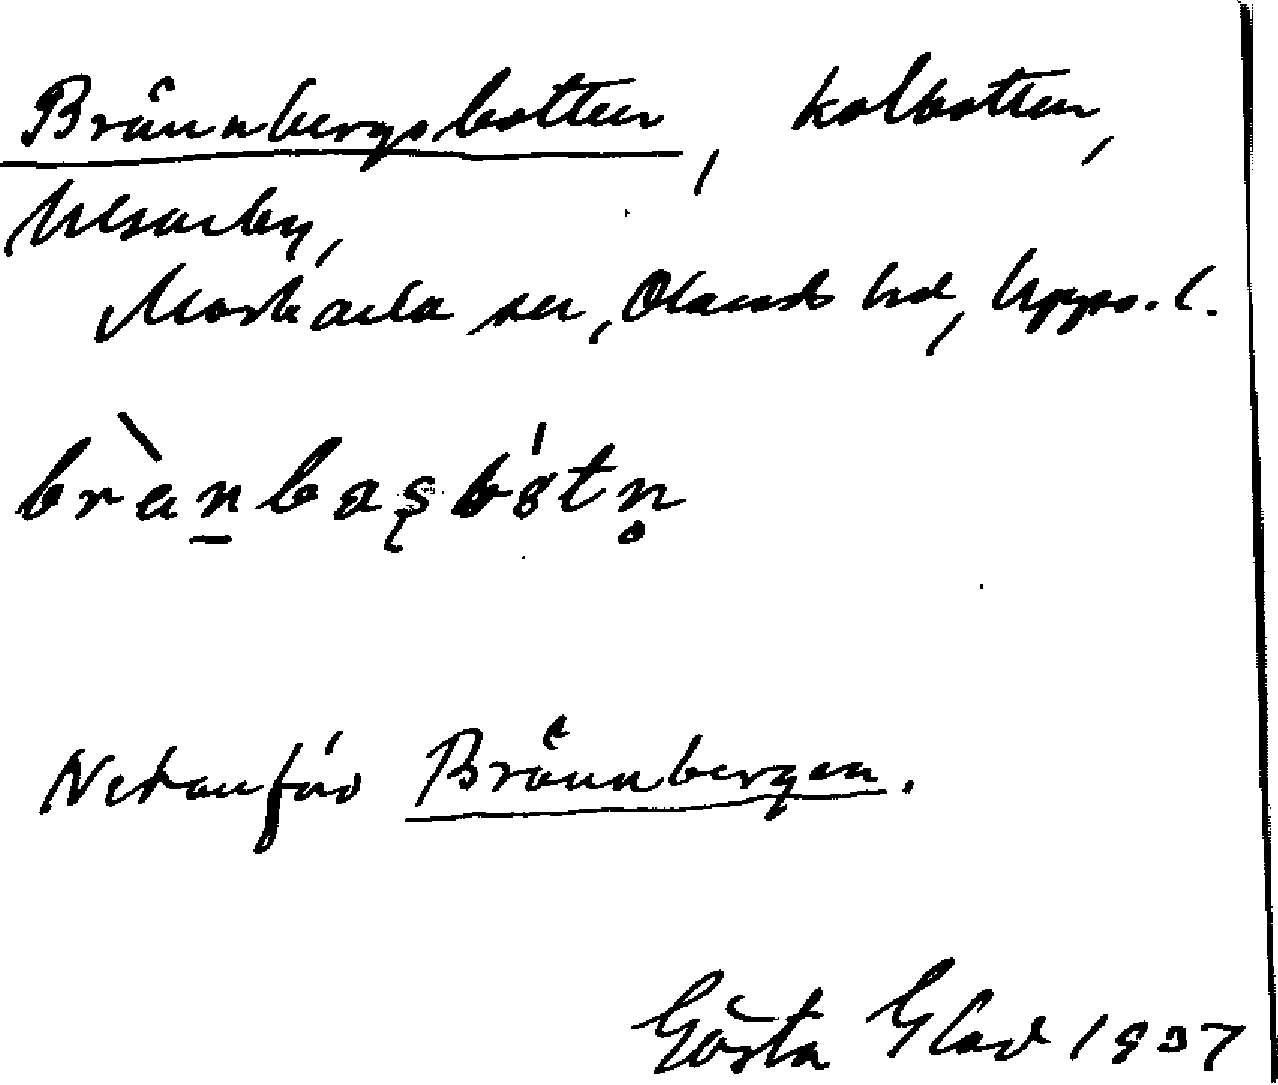 Brännbergsbotten, kolbotten,
Ulvsarby,
Morkarla sn, Olands hd, Upps. l.
brànbasbòtn
Nedanför Brännbergen.
Gösta Glad 1937